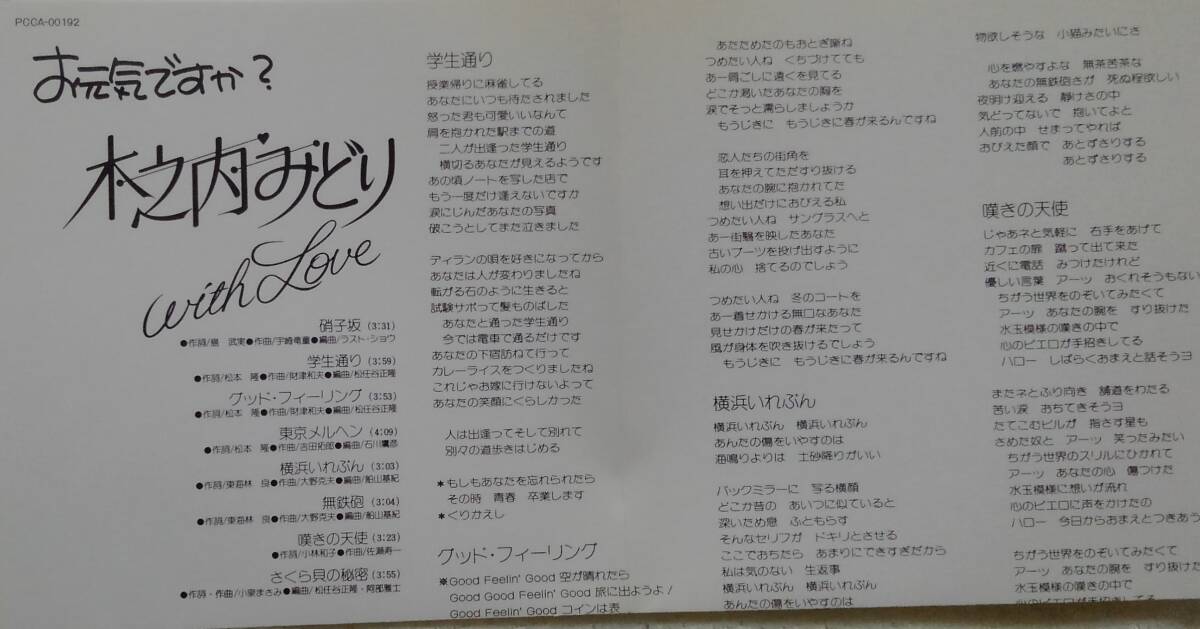 PCCA-00192
お元気ですか?
木之内みどり
with Love
硝子坂 (3:31)
●作詞/島 武実●作曲/宇崎竜童●編曲/ラスト・ショウ
学生通り (3:59)
●作詞/松本 隆●作曲/財津和夫●編曲/松任谷正隆
グッド・フィーリング (3:53)
●作詞/松本 隆●作曲/財津和夫●編曲/松任谷正隆
東京メルヘン (4:09)
●作詞/松本 隆●作曲/吉田拓郎●編曲/石川鷹彦
横浜いれぶん (3:03)
●作詞/東海林 良●作曲/大野克夫●編曲/船山基紀
無鉄砲 (3:04)
●作詞/東海林 良●作曲/大野克夫●編曲/船山基紀
嘆きの天使 (3:23)
●作詞/小林和子●作曲/佐瀬寿一
さくら貝の秘密 (3:55)
●作詞・作曲/小泉まさみ●編曲/松任谷正隆・阿部雅士
学生通り
授業帰りに麻雀してる
あなたにいつも待たされました
怒った君も可愛いいなんて
肩を抱かれた駅までの道
二人が出逢った学生通り
横切るあなたが見えるようです
あの頃ノートを写した店で
もう一度だけ逢えないですか
涙にじんだあなたの写真
破こうとしてまた泣きました
ディランの唄を好きになってから
あなたは人が変わりましたね
転がる石のように生きると
試験サボって髪ものばした
あなたと通った学生通り
今では電車で通るだけです
あなたの下宿訪ねて行って
カレーライスをつくりましたね
これじゃお嫁に行けないよって
あなたの笑顔にくらしかった
人は出逢ってそして別れて
別々の道歩きはじめる
*もしもあなたを忘れられたら
その時 青春 卒業します
*くりかえし
グッド・フィーリング
※Good Feelin' Good 空が晴れたら
Good Good Feelin' Good 旅に出ようよ/
Good Feelin' Good コインは表
あたためたのもおとぎ噺ね
つめたい人ね くちづけてても
あー肩ごしに遠くを見てる
どこか渇いたあなたの胸を
涙でそっと濡らしましょうか
もうじきに もうじきに春が来るんですね
恋人たちの街角を
耳を押えてただすり抜ける
あなたの腕に抱かれてた
想い出だけにおびえる私
つめたい人ね サングラスへと
あー街翳を映したあなた
古いブーツを投げ出すように
私の心 捨てるのでしょう
つめたい人ね 冬のコートを
あー着せかける無口なあなた
見せかけだけの春が来たって
風が身体を吹き抜けるでしょう
もうじきに もうじきに春が来るんですね
横浜いれぶん
横浜いれぶん 横浜いれぶん
あんたの傷をいやすのは
海鳴りよりは 土砂降りがいい
バックミラーに 写る横顔
どこか昔の あいつに似ていると
深いため息 ふともらす
そんなセリフが ドキリとさせる
ここでおちたら あまりにできすぎだから
私は気のない 生返事
横浜いれぶん 横浜いれぶん
あんたの傷をいやすのは
物欲しそうな 小猫みたいにさ
心を燃やすよな 無茶苦茶な
あなたの無鉄砲さが 死ぬ程欲しい
夜明け迎える 静けさの中
気どってないで 抱いてよと
人前の中 せまってやれば
おびえた顔で あとずさりする
あとずさりする
嘆きの天使
じゃあネと気軽に 右手をあげて
カフェの扉 蹴って出て来た
近くに電話 みつけたけれど
優しい言葉 アーッ おくれそうもない
ちがう世界をのぞいてみたくて
アーッ あなたの腕を すり抜けた
水玉模様の嘆きの中で
心のピエロが手招きしてる
ハロー しばらくおまえと話そうヨ
またネとふり向き 舗道をわたる
苦い涙 おちてきそうヨ
たてこむビルが 指さす星も
さめた奴と アーッ 笑ったみたい
ちがう世界のスリルにひかれて
アーッ あなたの心 傷つけた
水玉模様に想いが流れ
心のピエロに声をかけたの
ハロー 今日からおまえとつきあう
ちがう世界をのぞいてみたくて
アーッ あなたの腕を すり抜けた
水玉模様の嘆きの中で
心のピエロが手招きしてる